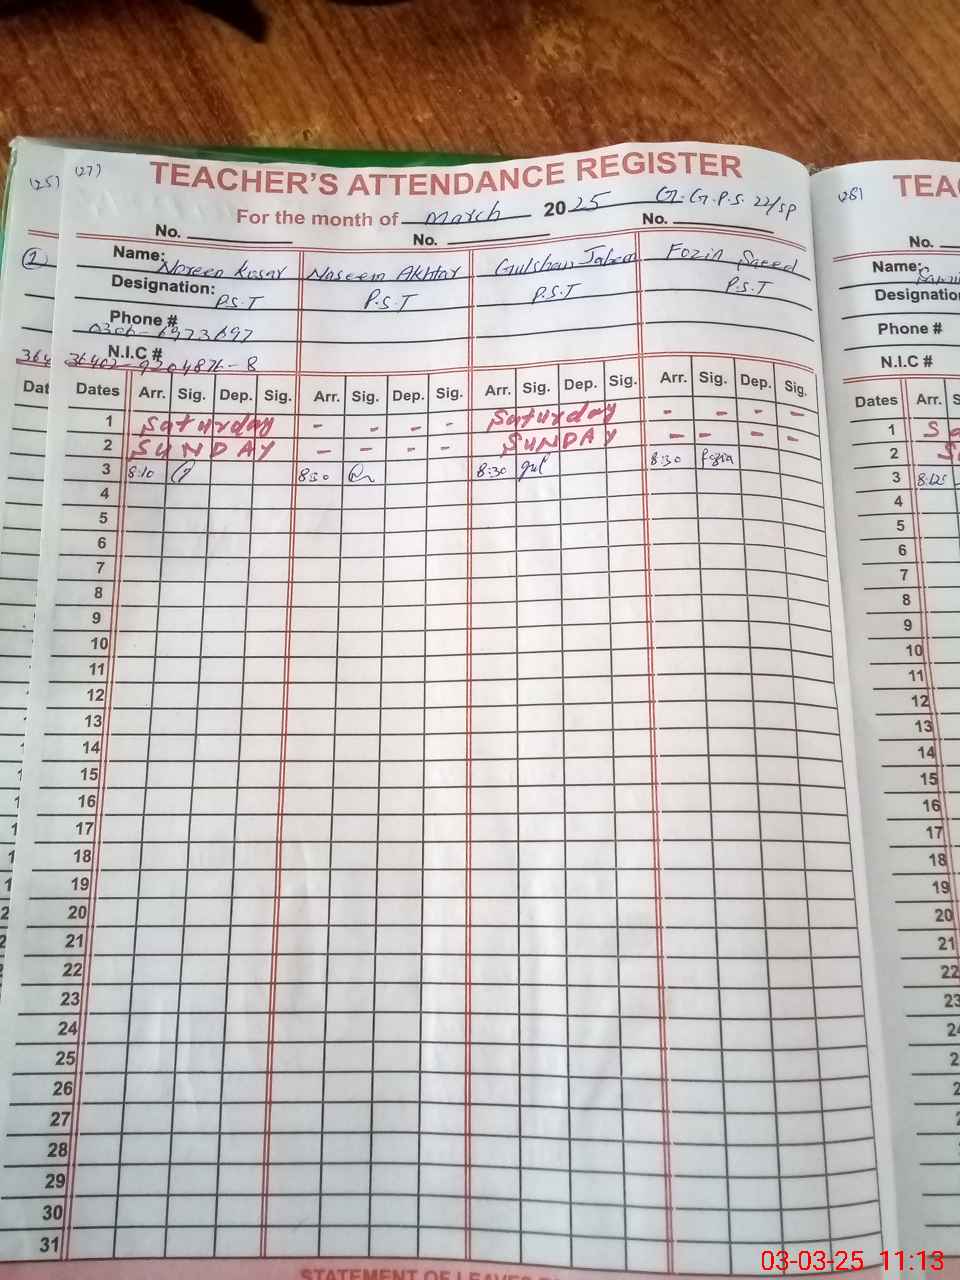 (25) (27) TEACHER'S ATTENDANCE REGISTER (28) TEA
For the month of March 2025 G.G.P.S. 22/SP
No. No. No. No.
(2) Name: Noreen Kosar Naseem Akhtar Gulshan Fozia Saeed Name:
Designation: P.S.T P.S.T P.S.T P.S.T Designatio
Phone # 0306-6973697 Phone #
N.I.C # 36402-9204876-8 N.I.C #
364
Dat Dates Arr. Sig. Dep. Sig. Arr. Sig. Dep. Sig. Arr. Sig. Dep. Sig. Arr. Sig. Dep. Sig. Dates Arr. S
1 Saturday - - - - Saturday - - - - 1 Sa
2 SUNDAY - - - - SUNDAY - - - - 2 S
3 8:10 8:30 8:30 gul 8:30 fozia 3 8:25
4 4
5 5
6 6
7 7
8 8
9 9
10 10
11 11
12 12
13 13
14 14
15 15
16 16
17 17
18 18
19 19
20 20
21 21
22 22
23 23
24 24
25 2
26 2
27 2
28
29
30
31
STATEMENT OF LEAVES
03-03-25 11:13